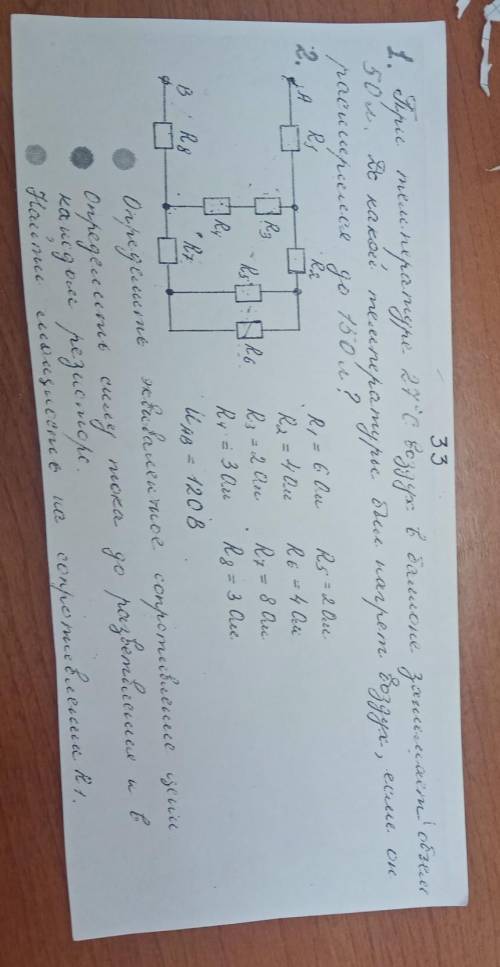 33
1. При температуре 27°С воздух в баллоне занимает объем
50 л. До какой температуры был нагрет воздух, если он
расширился до 150 л.?
2.
A R1 R2
R3 R5 R6
R4
B R8 R7
R1 = 6 Ом R5 = 2 Ом
R2 = 4 Ом R6 = 4 Ом
R3 = 2 Ом R7 = 8 Ом
R4 = 3 Ом R8 = 3 Ом
UАВ = 120 В
Определить эквивалентное сопротивление цепи
Определить силу тока до разветвления и в
каждом резисторе.
Найти мощность на сопротивлении R1.